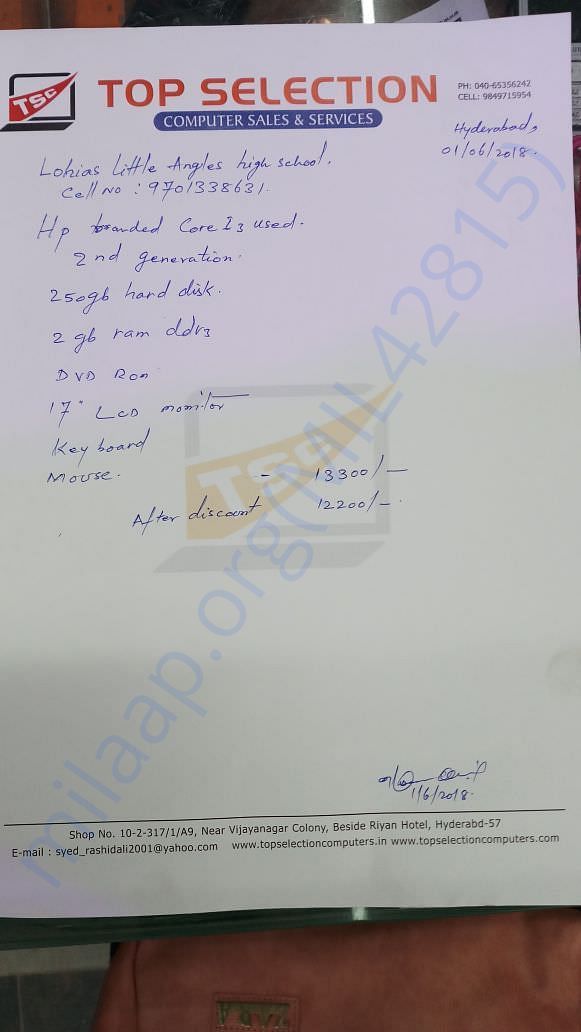 TSC
TOP SELECTION
COMPUTER SALES & SERVICES
PH: 040-65356242
CELL: 9849715954
Hyderabad,
01/06/2018.
Lohias Little Angles high school.
Cell No : 9701338631.
Hp branded Core I3 used.
2nd generation.
250gb hard disk.
2 gb ram ddr3
DVD Rom
17" LCD monitor
Key board
Mouse. - 13300/-
After discount 12200/-.
TSC
milaap.org(MIL42815)
1/6/2018.
Shop No. 10-2-317/1/A9, Near Vijayanagar Colony, Beside Riyan Hotel, Hyderabd-57
E-mail : syed_rashidali2001@yahoo.com www.topselectioncomputers.in www.topselectioncomputers.com